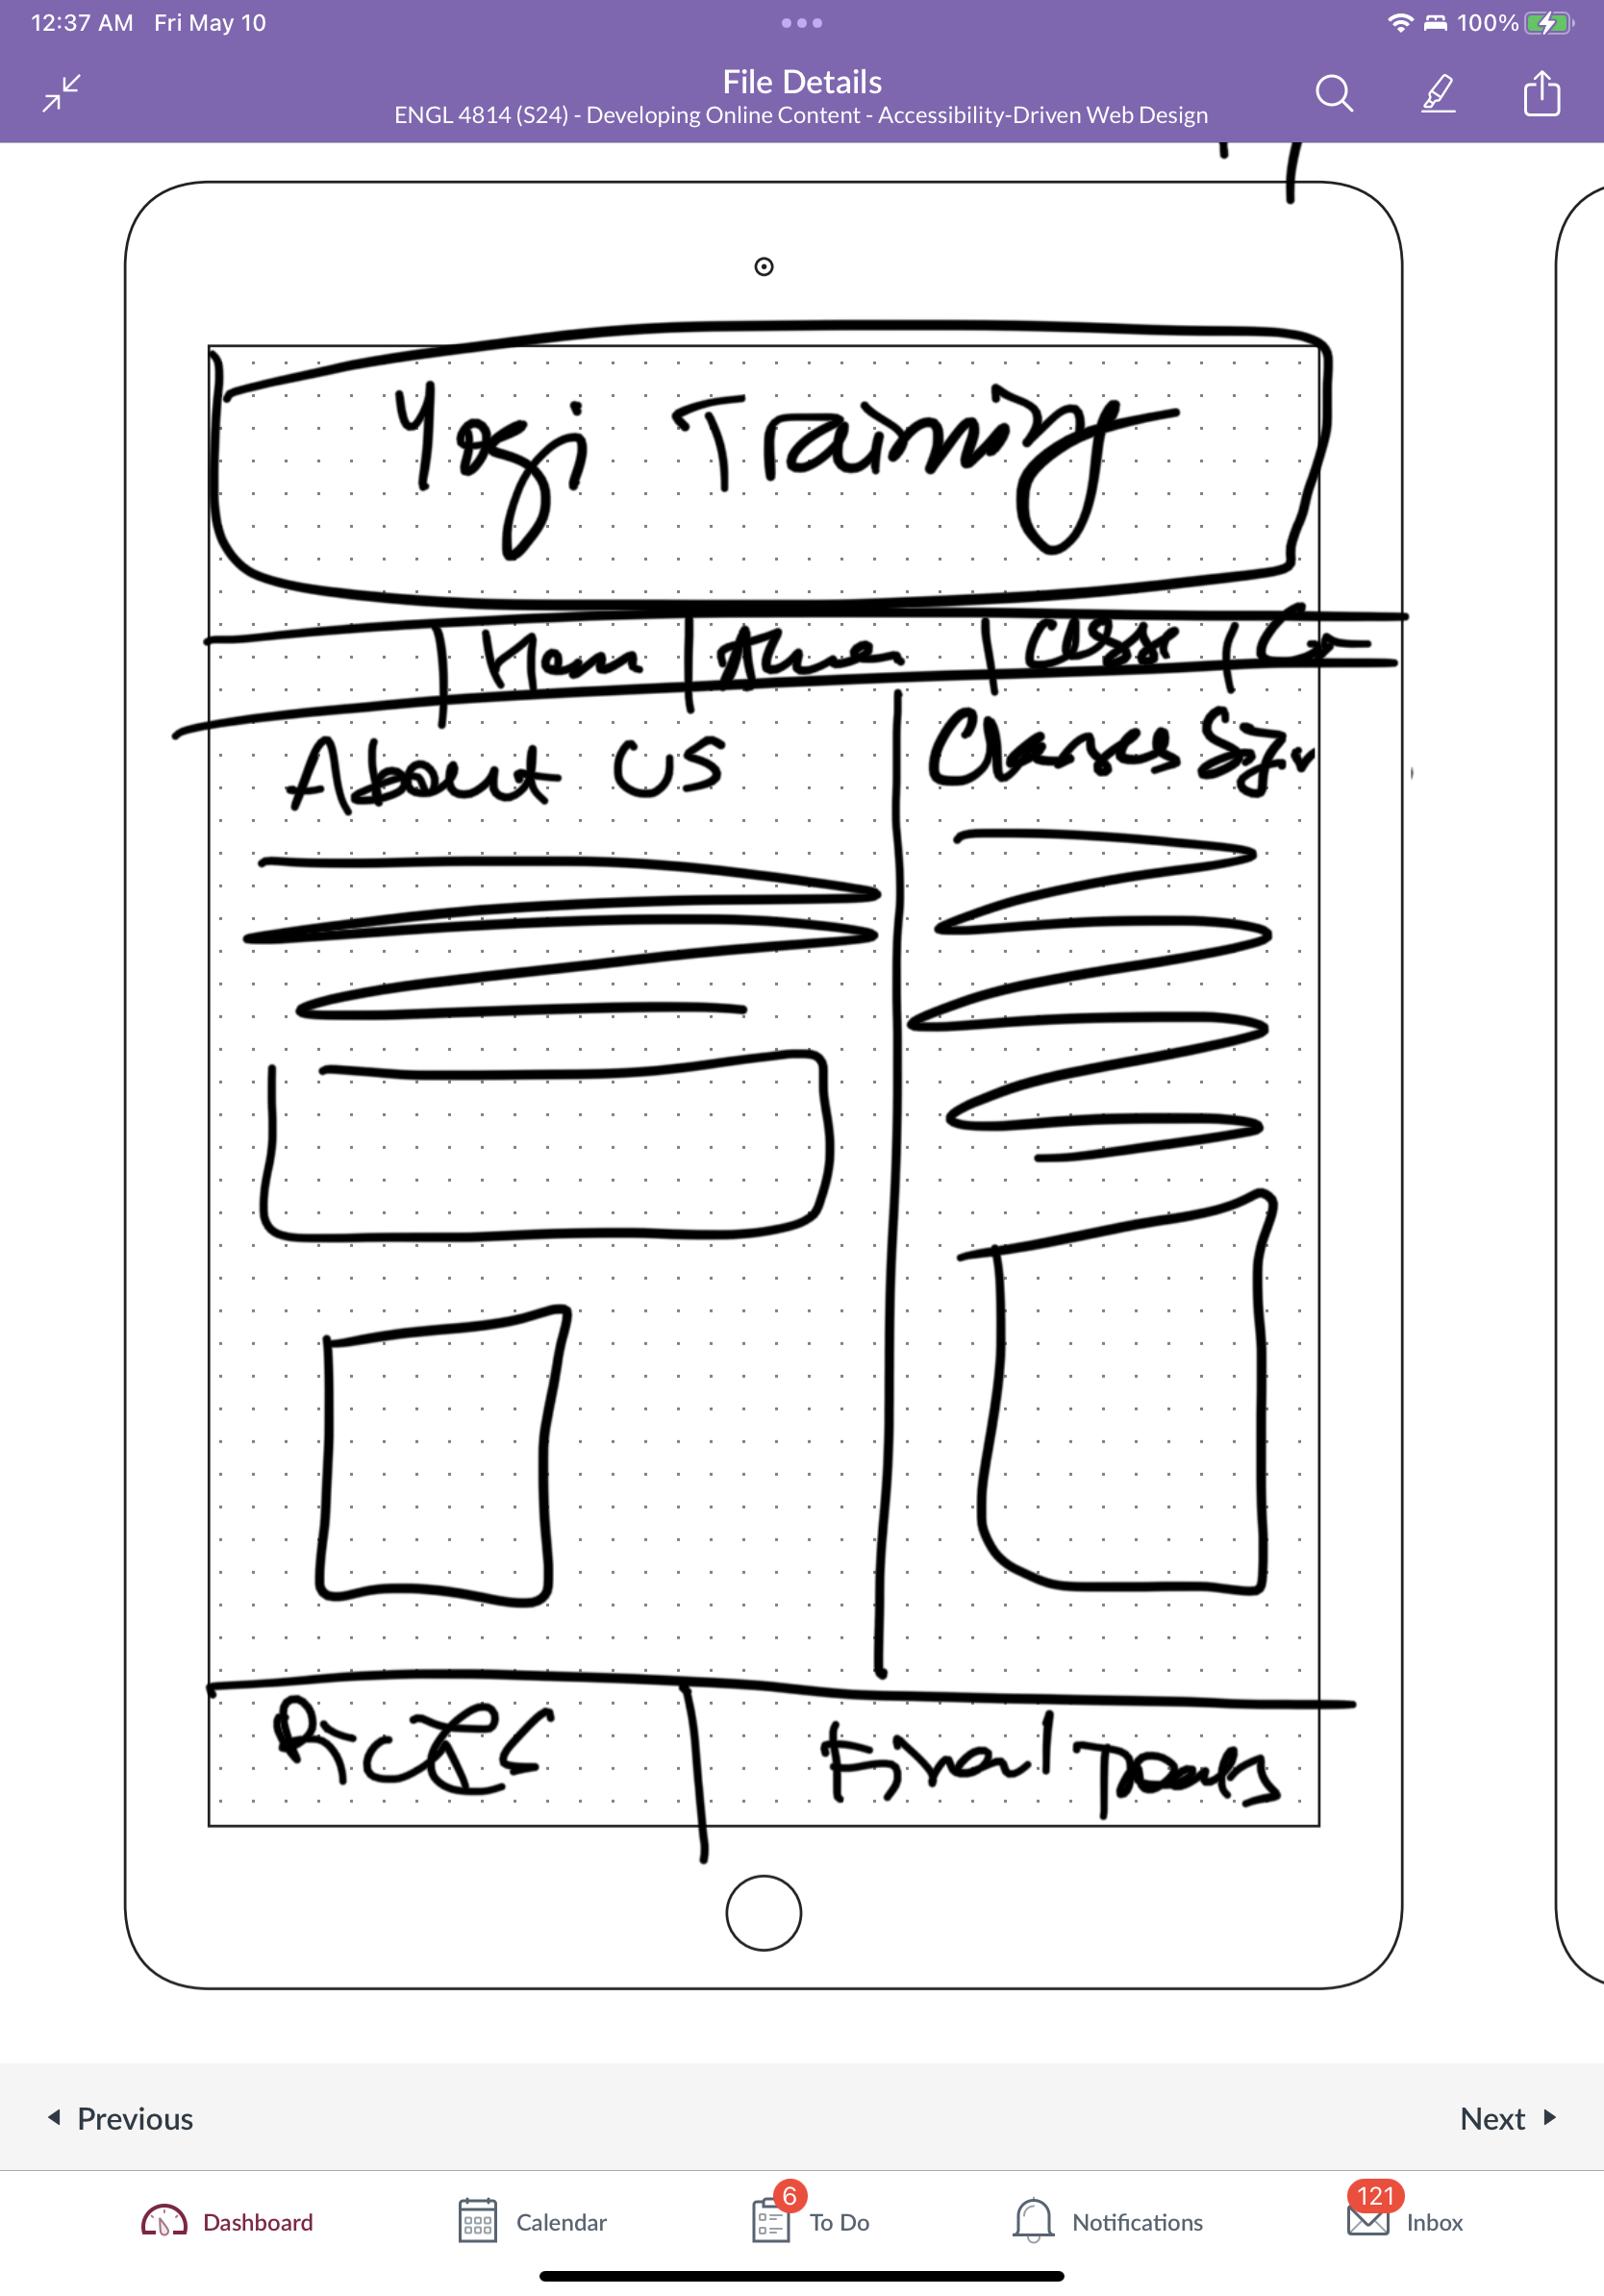 12:37 AM Fri May 10
100%
File Details
ENGL 4814 (S24) - Developing Online Content - Accessibility-Driven Web Design
Yogi Training
Hom
About US
Classes Sign
Final
Previous
Next
Dashboard
Calendar
6
To Do
Notifications
121
Inbox